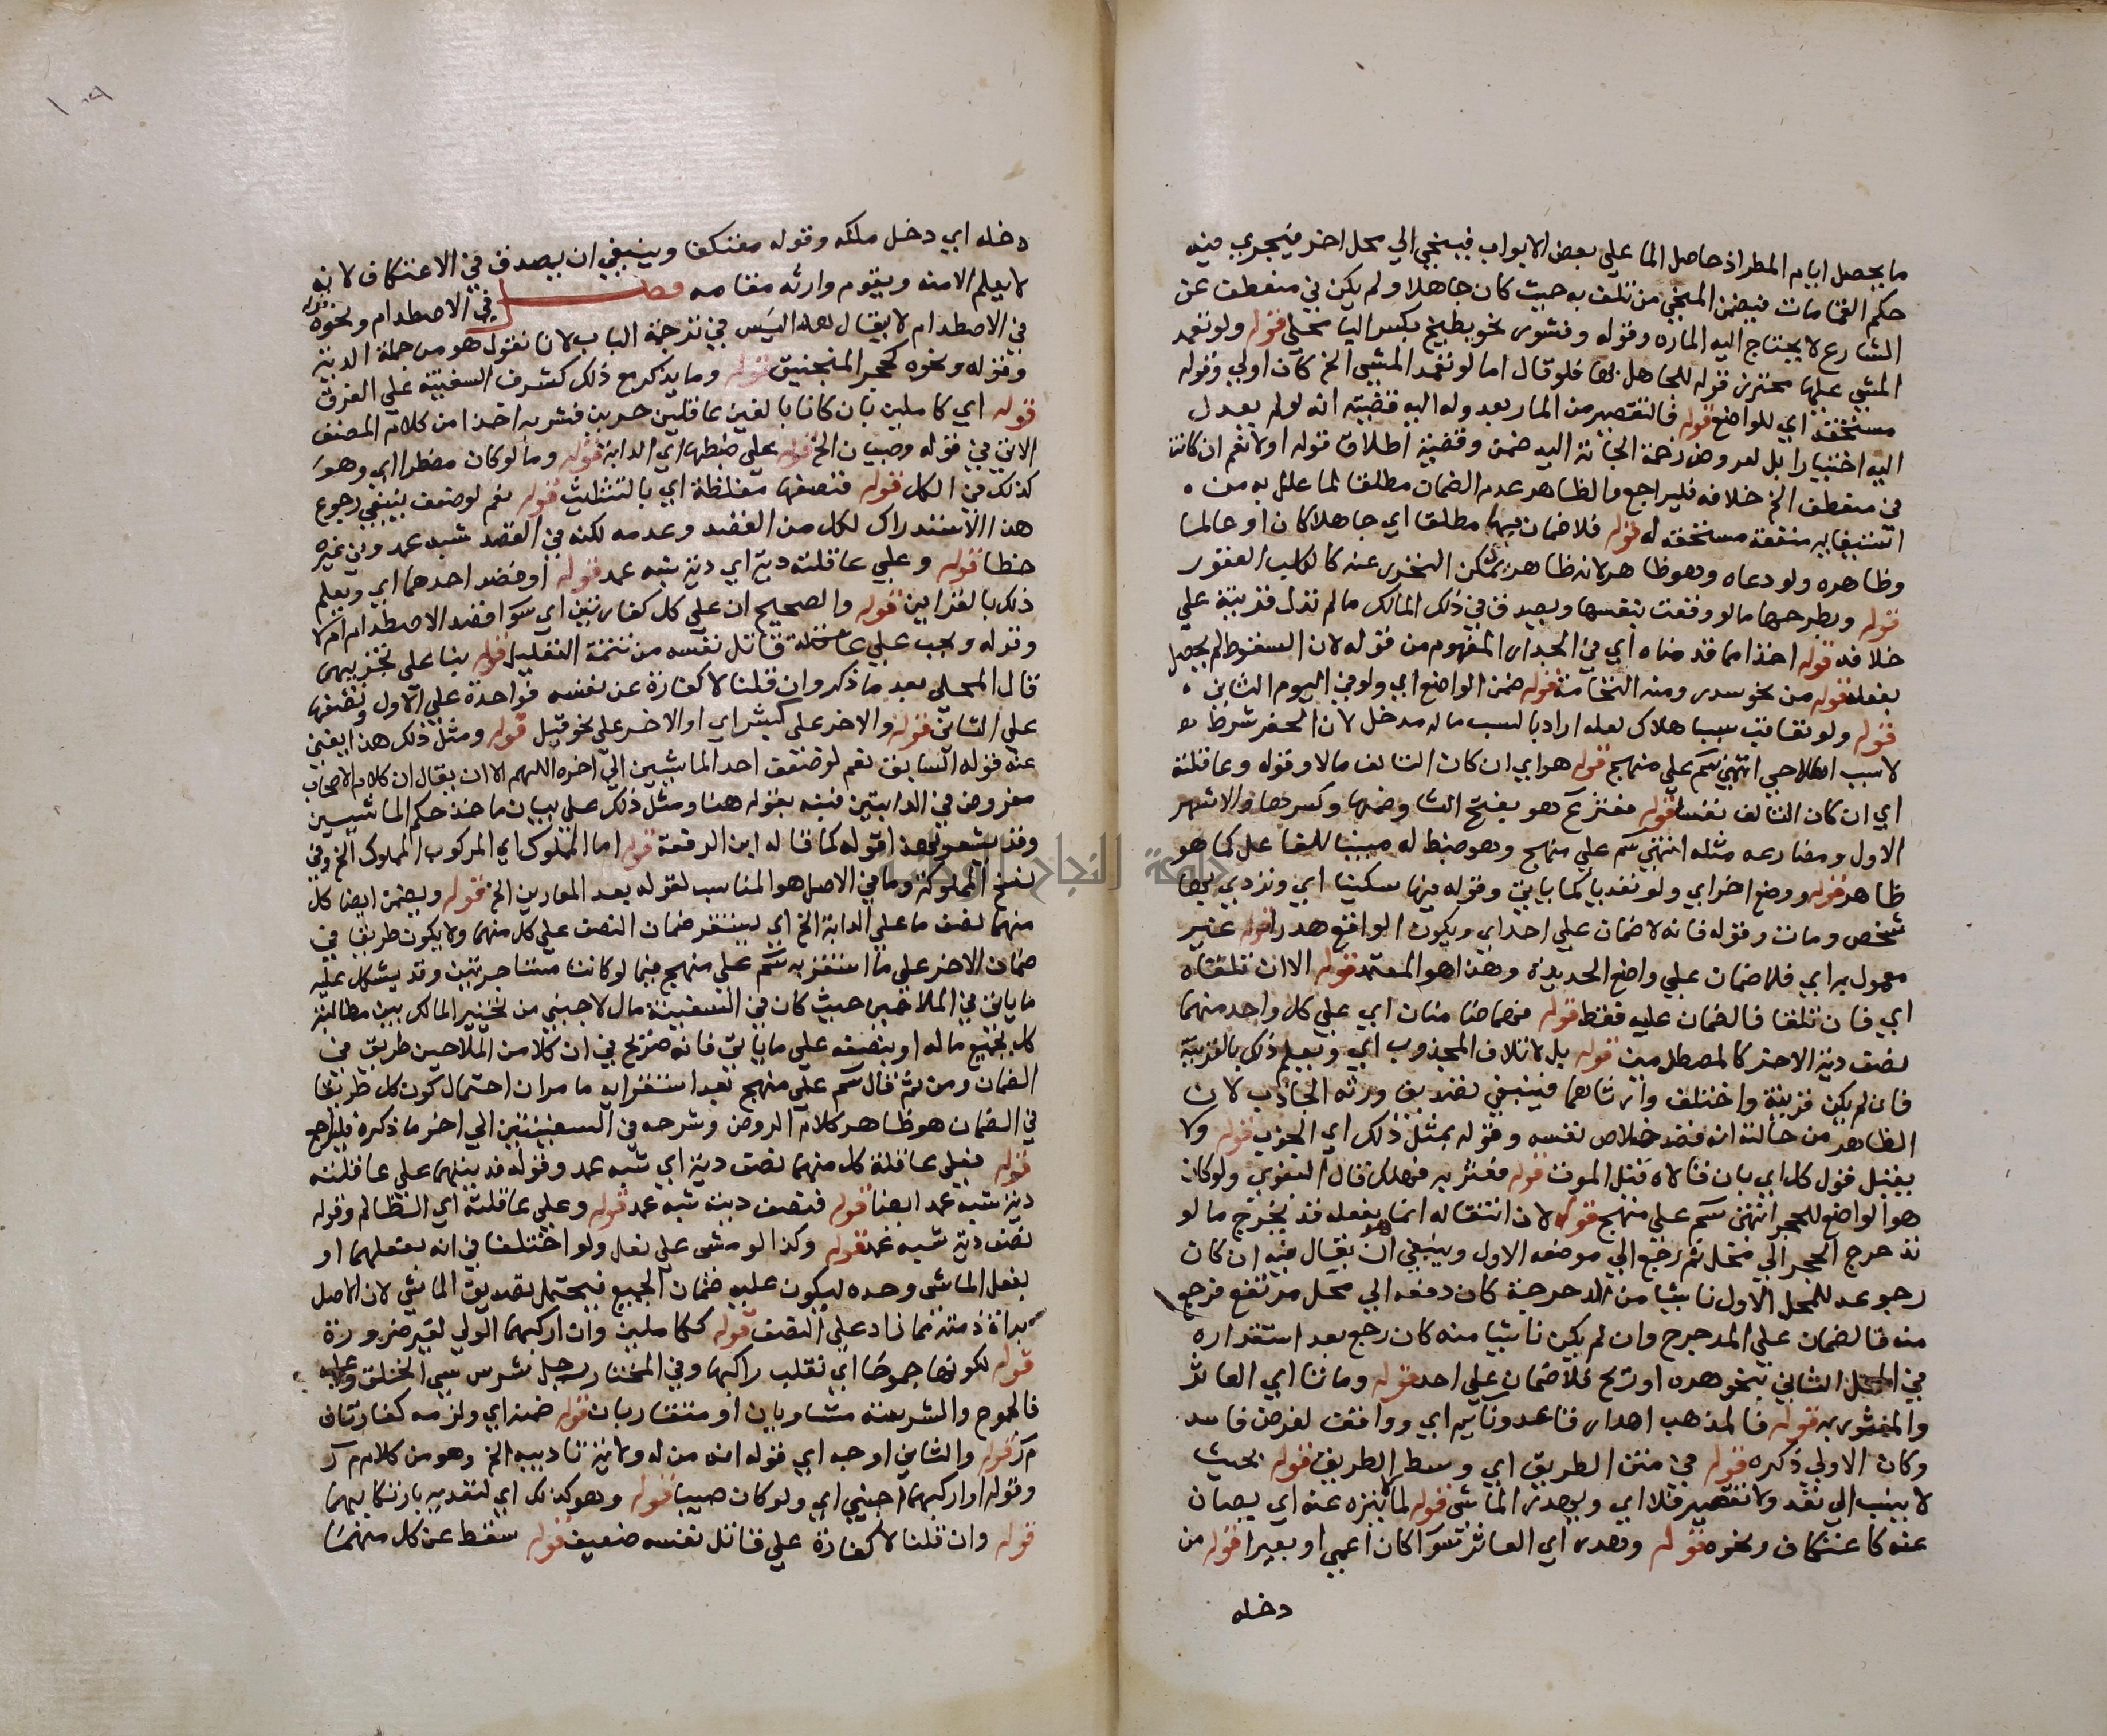 ما يحصل ايام المطر اذ حاصل الما علي بعض الابواب فينحي الي محل اخر فيجري فيه
حكم القمامات فيضمن المنحي من تلف به حيث كان جاهلا ولم يكن في منعطف عن
الشارع لا يحتاج اليه المارة وقوله وقشور نحو بطيخ بكسر اليا محلي قوله ولو تعمد
المشي عليها محترز قوله للجاهل بها فلو قال اما لو تعمد المشي الخ كان اولي وقوله
مستحقة اي للواضع قوله فالتقصير من المار بعد وله اليه قضيته انه لو لم يعدل
اليه اختيارا بل لعروض زحمة الجاته اليه ضمن وقضية اطلاق قوله او لا نعم ان كانت
في منعطف الخ خلافه فليراجع والظاهر عدم الضمان مطلقا لما علل به من
استيفا به منفعة مستحقة له قوله فلا ضمان فيها مطلقا اي جاهلا كان او عالما
وظاهره ولو دعاه وهو ظاهر لانه ظاهر يمكن التحرز عنه كالكلب العقور
قوله وبطرحها ما لو وقعت بنفسها ويصدق في ذلك المالك ما لم تدل قرينة علي
خلافه قوله اخذا مما قدمناه اي في الجدار المفهوم من قوله لان السقوط لم يحصل
بفعله قوله من نحو سدر ومنه النخامة قوله ضمن الواضع اي ولو في اليوم الثاني
قوله ولو تعاقب سببا هلاك لعله اراد بالسبب ما له مدخل لان الحفر شرط
لا سبب اصطلاحي انتهي سم علي منهج قوله هو اي ان كان التالف مالا وقوله وعاقلته
اي ان كان التالف نفسا قوله فعثر ع هو بفتح الثا وضمها وكسرها والاشهر
الاول ومضارعه مثله انتهي سم علي منهج وهو ضبط له مبنيا للفاعل كما هو
ظاهر قوله ووضع اخر اي ولو تعديا كما ياتي وقوله فيها سكينا اي وتردي بها
شخص ومات وقوله فانه لا ضمان علي احد اي ويكون الواقع هدرا قوله غير
معمول به اي فلا ضمان علي واضع الحديدة وهذا هو المعتمد قوله الا ان تلقاه
اي فان تلفا فالضمان عليه فقط قوله فهما ضامنان اي علي كل واحد منهما
نصف دية الاخر كالمصطدمين قوله بل لاتلاف المجذوب اي ويعلم ذلك بالقرينة
فان لم يكن قرينة واختلف وارثاهما فينبغي تصديق ورثة الجاذب لان
الظاهر من حالته انه قصد خلاص نفسه وقوله بمثل ذلك اي الجذب قوله ولا
يقبل قول كل اي بان قالاه قبل الموت قوله فعثر به فهلك قال البغوي ولو كان
هو الواضع للحجر انتهي سم علي منهج قوله لان انتقاله انما هو بفعله قد يخرج ما لو
تدحرج الحجر الي محل ثم رجع الي موضعه الاول وينبغي ان يقال فيه ان كان
رجوعه للمحل الاول ناشيا من الدحرجة كان دفعه الي محل مرتفع فرجع
منه فالضمان علي المدحرج وان لم يكن ناشيا منه كان رجع بعد استقراره
في المحل الثاني بنحو هرة او ريح فلا ضمان علي احد قوله وماتا اي العاثر
والمعثور به قوله فالمذهب اهدار قاعد ونايم اي وواقف لغرض فاسد
وكان الاولي ذكره قوله في متن الطريق اي وسط الطريق قوله بحيث
لا ينسب الي تعد ولا تقصير فلا اي ويهدر الماشي قوله لما ينزه عنه اي يصان
عنه كاعتكاف ونحوه قوله وهدر اي العاثر سوا كان اعمي او بصيرا قوله من
دخله
١٠٩
دخله اي دخل ملكه وقوله معتكفا وينبغي ان يصدق في الاعتكاف لانه
لا يعلم الا منه ويقوم وارثه مقامه فصل في الاصطدام ونحوه قوله
في الاصطدام لا يقال هذا ليس في ترجمة الباب لانا نقول هو من جملة الدية
وقوله ونحوه كحجر المنجنيق قوله وما يذكر مع ذلك كشرف السفينة علي الغرق
قوله اي كاملين بان كانا بالغين عاقلين حرين فسر به اخذا من كلام المصنف
الاتي في قوله وصبيان الخ قوله علي ضبطها اي الدابة قوله وما لو كان مضطرا اي وهو
كذلك في الكل قوله فنصفها مغلظة اي بالتثليث قوله نعم لو ضعف ينبغي رجوع
هذا الاستدراك لكل من القصد وعدمه لكنه في القصد شبه عمد وفي غيره
خطا قوله وعلي عاقلته دية اي دية شبه عمد قوله او قصد احدهما اي ويعلم
ذلك بالقراين قوله والصحيح ان علي كل كفارتين اي سوا قصد الاصطدام ام لا
وقوله ويجب علي عاقلة قاتل نفسه من تتمة التعليل قوله بنا علي تجزيهما
قال المحلي بعد ما ذكر وان قلنا لا كفارة عن نفسه فواحدة علي الاول ونصفها
علي الثاني قوله والاخر علي كبش اي او الاخر علي نحو فيل قوله ومثل ذلك هذا يغني
عنه قوله السابق نعم لو ضعف احد الماشيين الي اخره اللهم الا ان يقال ان كلام الاصحاب
مفروض في الدابتين فنبه بقوله هنا ومثل ذلك علي بيان ماخذ حكم الماشيين
وقد يشعر بهذا قوله كما قاله ابن الرفعة قوله اما المملوك اي المركوب المملوك الخ وفي
نسخ المملوكة وما في الاصل هو المناسب لقوله بعد المعارين الخ قوله ويضمن ايضا كل
منهما نصف ما علي الدابة الخ اي يستقر ضمان النصف علي كل منهما ولا يكون طريقا في
ضمان الاخر علي ما استقر به سم علي منهج فيما لو كانتا مستاجرتين وقد يشكل عليه
ما ياتي في الملاحين حيث كان في السفينة مال لاجنبي من تخيير المالك بين مطالبة
كل بجميع ماله او بنصفه علي ما ياتي فانه صريح في ان كلا من الملاحين طريق في
الضمان ومن ثم قال سم علي منهج بعد استقرابه ما مر ان احتمال كون كل طريقا
في الضمان هو ظاهر كلام الروض وشرحه في السفينتين الي اخر ما ذكره فليراجع
قوله فعلي عاقلة كل منهما نصف دية اي شبه عمد وقوله فديتهما علي عاقلته
دية شبه عمد ايضا قوله فنصف دية شبه عمد قوله وعلي عاقلته اي الظالم وقوله
نصف دية شبه عمد قوله وكذا لو مشي علي نعل ولو اختلفا في انه بفعلهما او
بفعل الماشي وحده ليكون عليه ضمان الجميع فيحتمل تصديق الماشي لان الاصل
براة ذمته مما زاد علي النصف قوله ككاملين وان اركبهما الولي لغير ضرورة
قوله لكونها جموحا اي تغلب راكبها وفي المختار رجل شرس سي الخلق وعليه
فالجموح والشرسة متساويان او متقاربان قوله ضمنه اي ولزمه كفارتان
م ر قوله والثاني اوجه اي قوله انه من له ولاية تاديبه الخ وهو من كلام م ر
وقوله او اركبهما اجنبي اي ولو كان صبيا قوله وهو كذلك اي لتعديه باركابهما
قوله وان قلنا لا كفارة علي قاتل نفسه ضعيف قوله سقط عن كل منهما